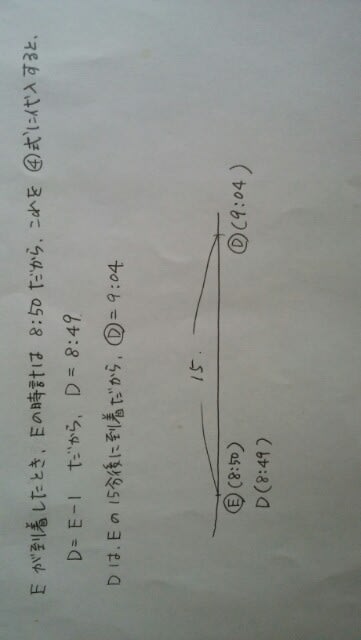 Eが到着したとき、Eの時計は 8:50 だから、これを ④式に代入すると、
D=E-1 だから、D=8:49
Dは、Eの15分後に到着だから、Ⓓ=9:04
15.
Ⓔ(8:50)
Ⓓ(9:04)
D(8:49)